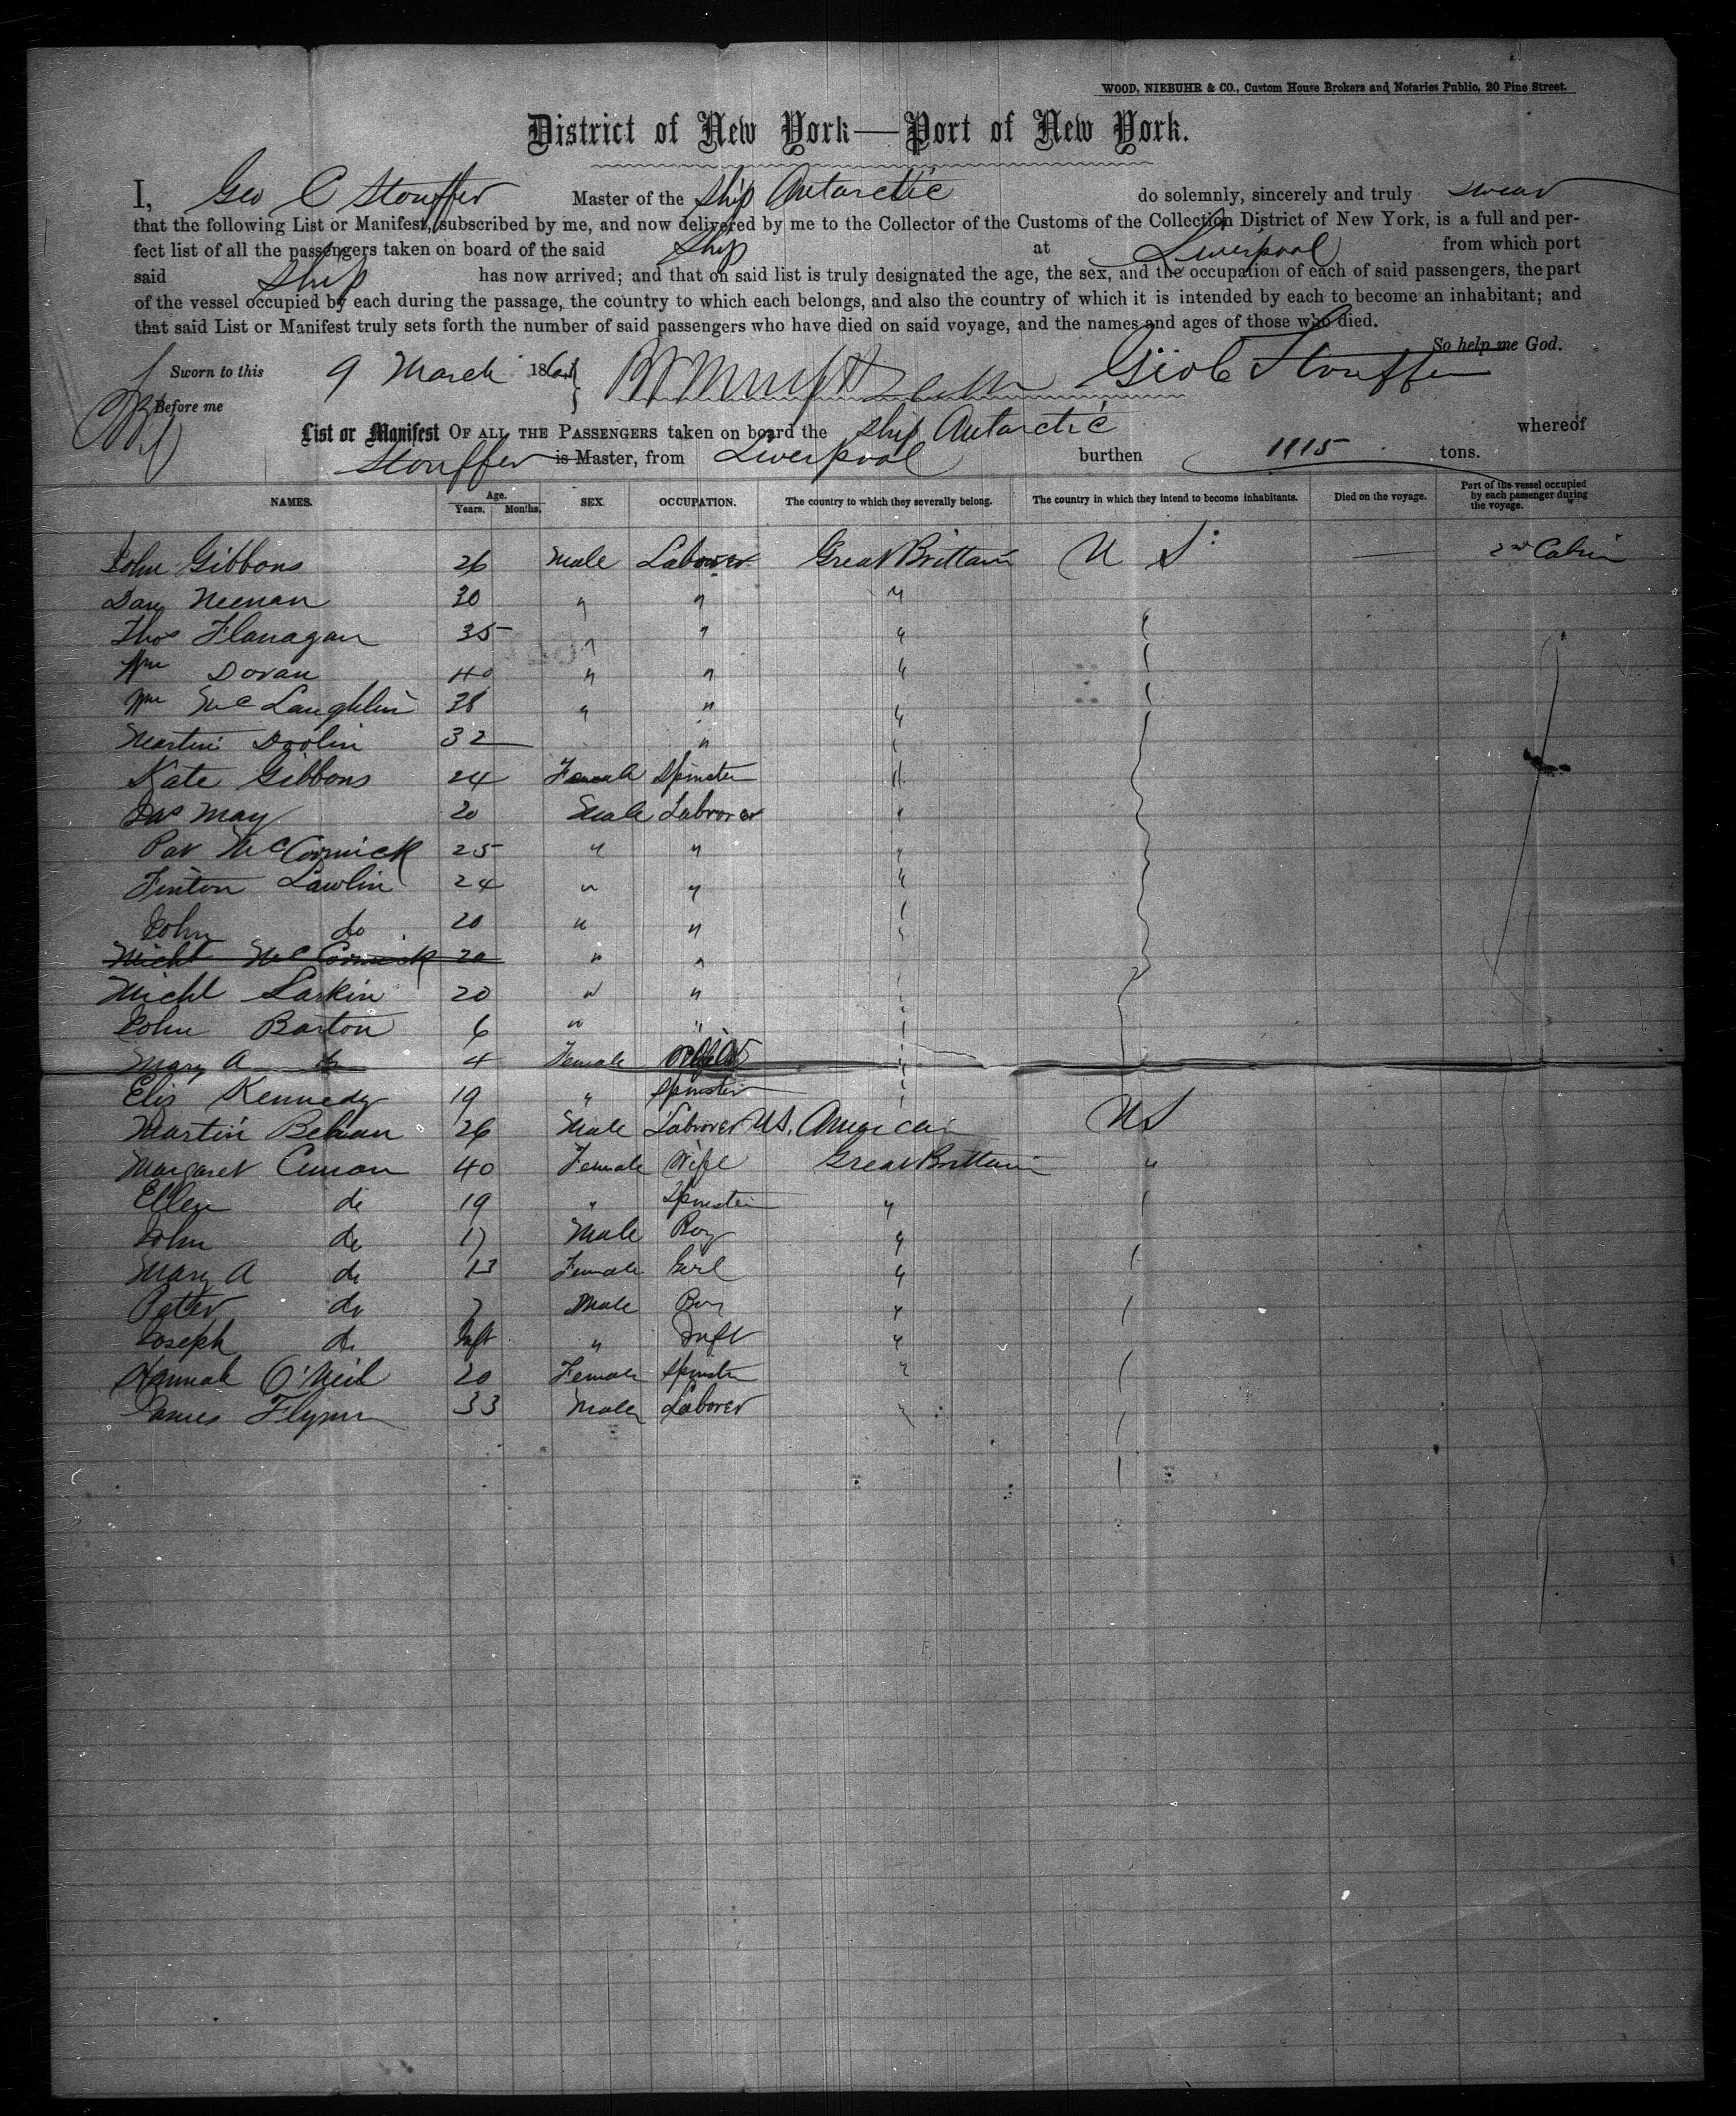 WOOD, NIEBUHR & CO., Custom House Brokers and Notaries Public, 20 Pine Street.
District of New York—Port of New York.
I, Geo C Stouffer Master of the Ship Antarctic do solemnly, sincerely and truly swear
that the following List or Manifest, subscribed by me, and now delivered by me to the Collector of the Customs of the Collection District of New York, is a full and per-
fect list of all the passengers taken on board of the said Ship at Liverpool from which port
said Ship has now arrived; and that on said list is truly designated the age, the sex, and the occupation of each of said passengers, the part
of the vessel occupied by each during the passage, the country to which each belongs, and also the country of which it is intended by each to become an inhabitant; and
that said List or Manifest truly sets forth the number of said passengers who have died on said voyage, and the names and ages of those who died.
So help me God.
Sworn to this 9 March 186 Geo C Stouffer
Before me
List or Manifest OF ALL THE PASSENGERS taken on board the Ship Antarctic whereof
Stouffer is Master, from Liverpool burthen 1115 tons.
NAMES. Age. Years. Months. SEX. OCCUPATION. The country to which they severally belong. The country in which they intend to become inhabitants. Died on the voyage. Part of the vessel occupied by each passenger during the voyage.
John Gibbons 26 Male Laborer Great Brittain U S 2nd Cabin
Dan Neenan 30 " " "
Thos Flanagan 35 " " "
Wm Doran 40 " " "
Wm McLaughlin 38 " " "
Martin Doolin 32 " "
Kate Gibbons 24 Female Spinster "
Jas May 20 Male Laborer "
Pat McCormick 25 " " "
Finton Lawlin 24 " " "
John do 20 " " "
Michl McCormick 20 " "
Michl Larkin 20 " "
John Barton 6 " "
Mary A do 4 Female
Elis Kennedy 19 " Spinster
Martin Behan 26 Male Laborer U S. America U S
Margaret Curran 40 Female Wife Great Brittain "
Ellen do 19 " Spinster "
John do 17 Male Boy "
Mary A do 13 Female Girl "
Petter do 7 Male Boy "
Joseph do Inft " Inft "
Hannah O'Neil 20 Female Spinster "
James Flynn 33 Male Laborer "